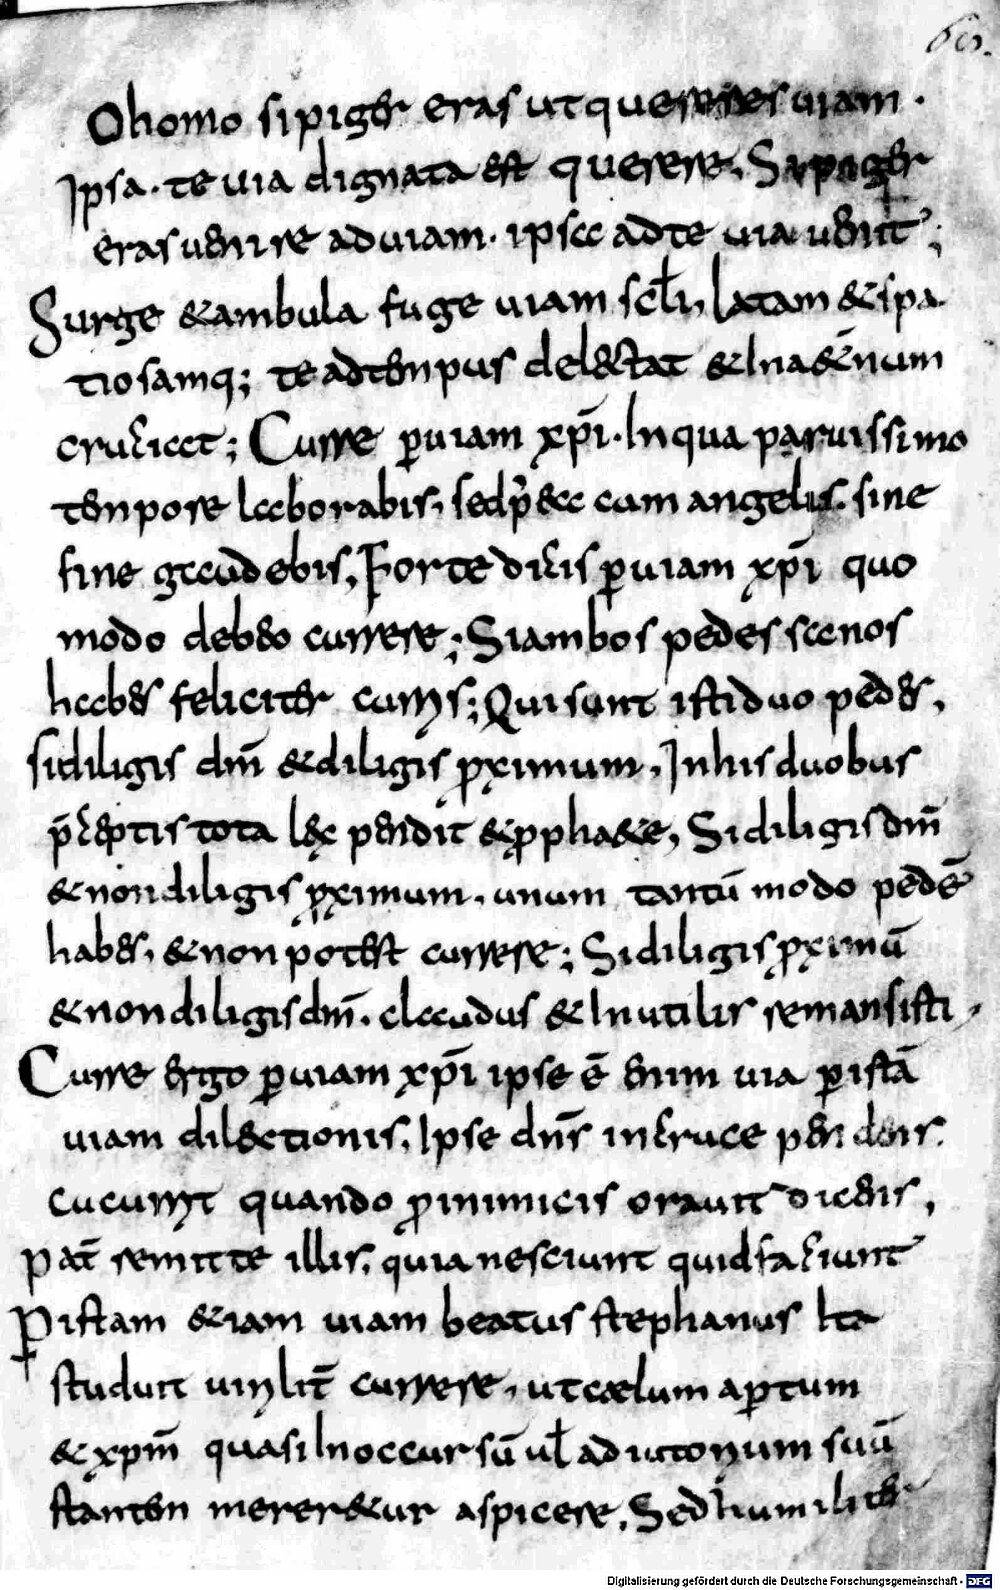 60.
O homo si piger eras ut quereres uiam ·
Ipsa · te uia dignata est querere, Si piger
eras uenire ad uiam · ipsa ad te uia uenit;
Surge & ambula fuge uiam scłi, latam & spa
tiosamq; te ad tempus delectat & In aeternum
cruciat; Curre ꝑ uiam xp̄i · In qua paruissimo
tempore laborabis, sed postea cum angelis, sine
fine gaudebis, Forte dicis ꝑ uiam xp̄i quo
modo debeo currere; Si ambos pedes sanos
habes feliciter curris; Qui sunt isti duo pedes,
si diligis dm̄ & diligis ꝓximum, In his duobus
p̄ceptis tota lex pendit & ꝓphaetae, Si diligis dm̄
& non diligis ꝓximum, unum tantū modo pedē
habes, & non potest currere; Si diligis ꝓximū
& non diligis dm̄ · claudus & Inutilis remansisti,
Curre ergo ꝑ uiam xp̄i ipse ē enim uia ꝑ istā
uiam dilectionis, Ipse dn̄s in cruce pendens,
cucurrit quando ꝓ inimicis orauit dicens,
pat̄ remitte illis, quia nesciunt quid faciunt
Ꝑ istam &iam uiam beatus stephanus Ita
studuit uirilit̄ currere, ut cælum aꝑtum
& xpm̄ quasi In occursū uł adiutorium suū
stantem merer&ur aspicere, Sed humiliter
Digitalisierung gefördert durch die Deutsche Forschungsgemeinschaft - DFG